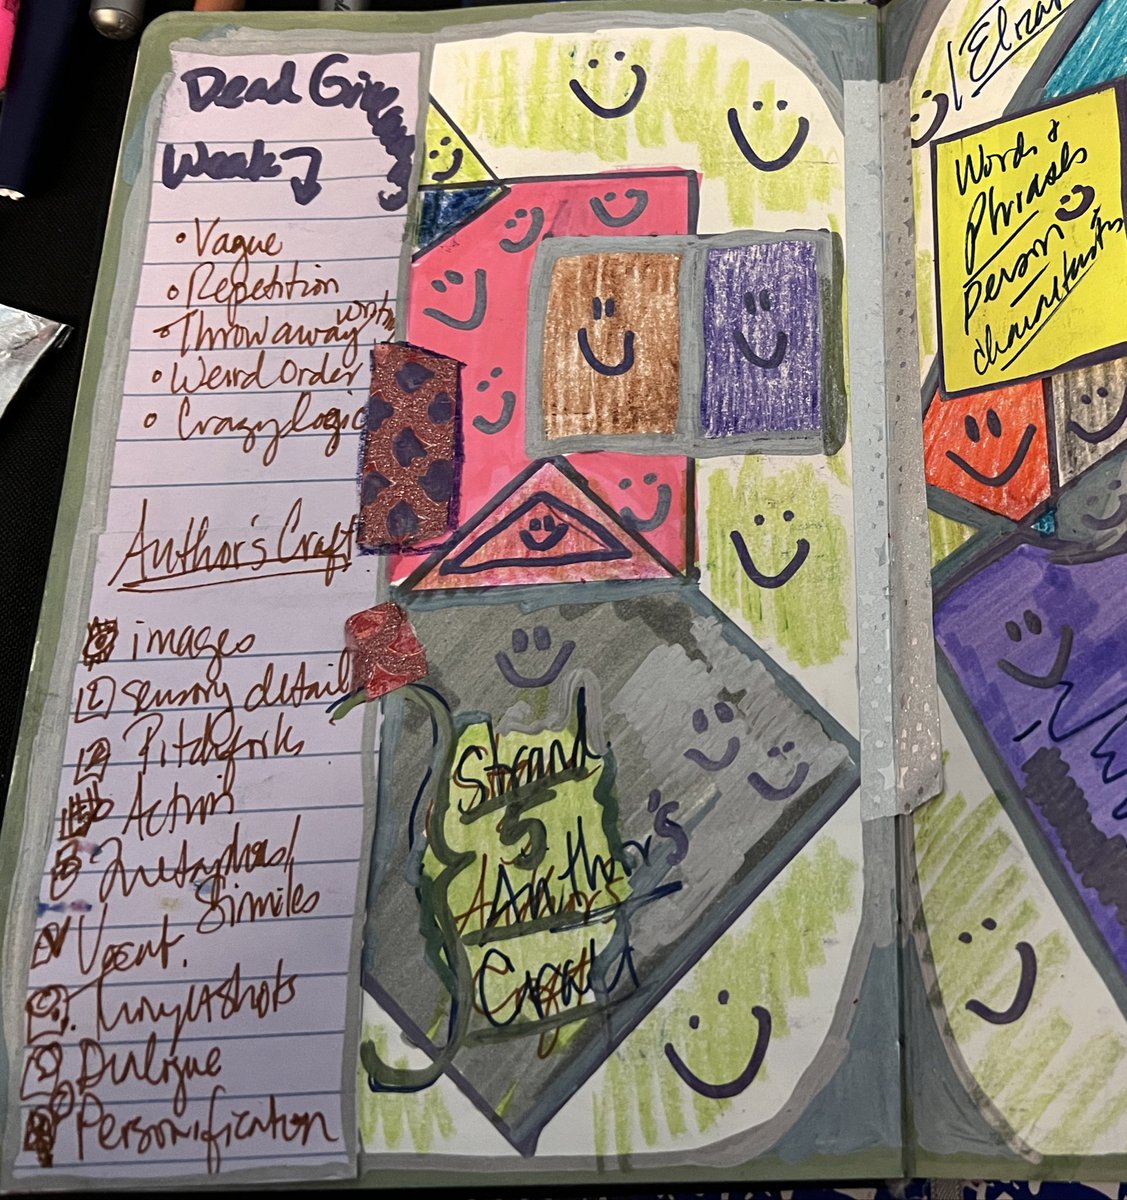 Dead Giveaways
Weak
• Vague
• Repetition
• Throwaway writing
• Weird Order
• Crazy logic
Author's Craft
images
sensory detail
Pitchforks
Action
Metaphors/
Similes
Vocab.
Thoughtshots
Dialogue
Personification
Strand
5
Author's
Craft
Words &
Phrases
Person